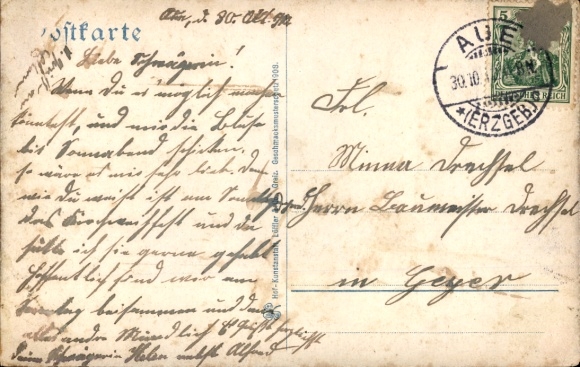 Postkarte
Aue, d. 30. Okt.
Liebe Schwägerin!
Wenn Du es möglich machen
könntest, und mir die Bluse
bis Sonnabend schicken,
so wäre es mir sehr lieb. Denn
wie Du weißt ist am Sonntag
das Kirchweihfest und da
hätte ich sie gerne gehabt
Hoffentlich sind wir am
Sonntag beisammen und dann
alles andre Mündlich Es grüßt herzlichst
Deine Schwägerin Helen nebst Alfred
Hof-Kunstanstalt Löffler Greiz. Geschmacksmusterschutz 1908.
5
AUE
30.10.
*(ERZGEB.)
REICH
Frl.
Minna Drechsel
Herrn Baumeister Drechsel
in Geyer